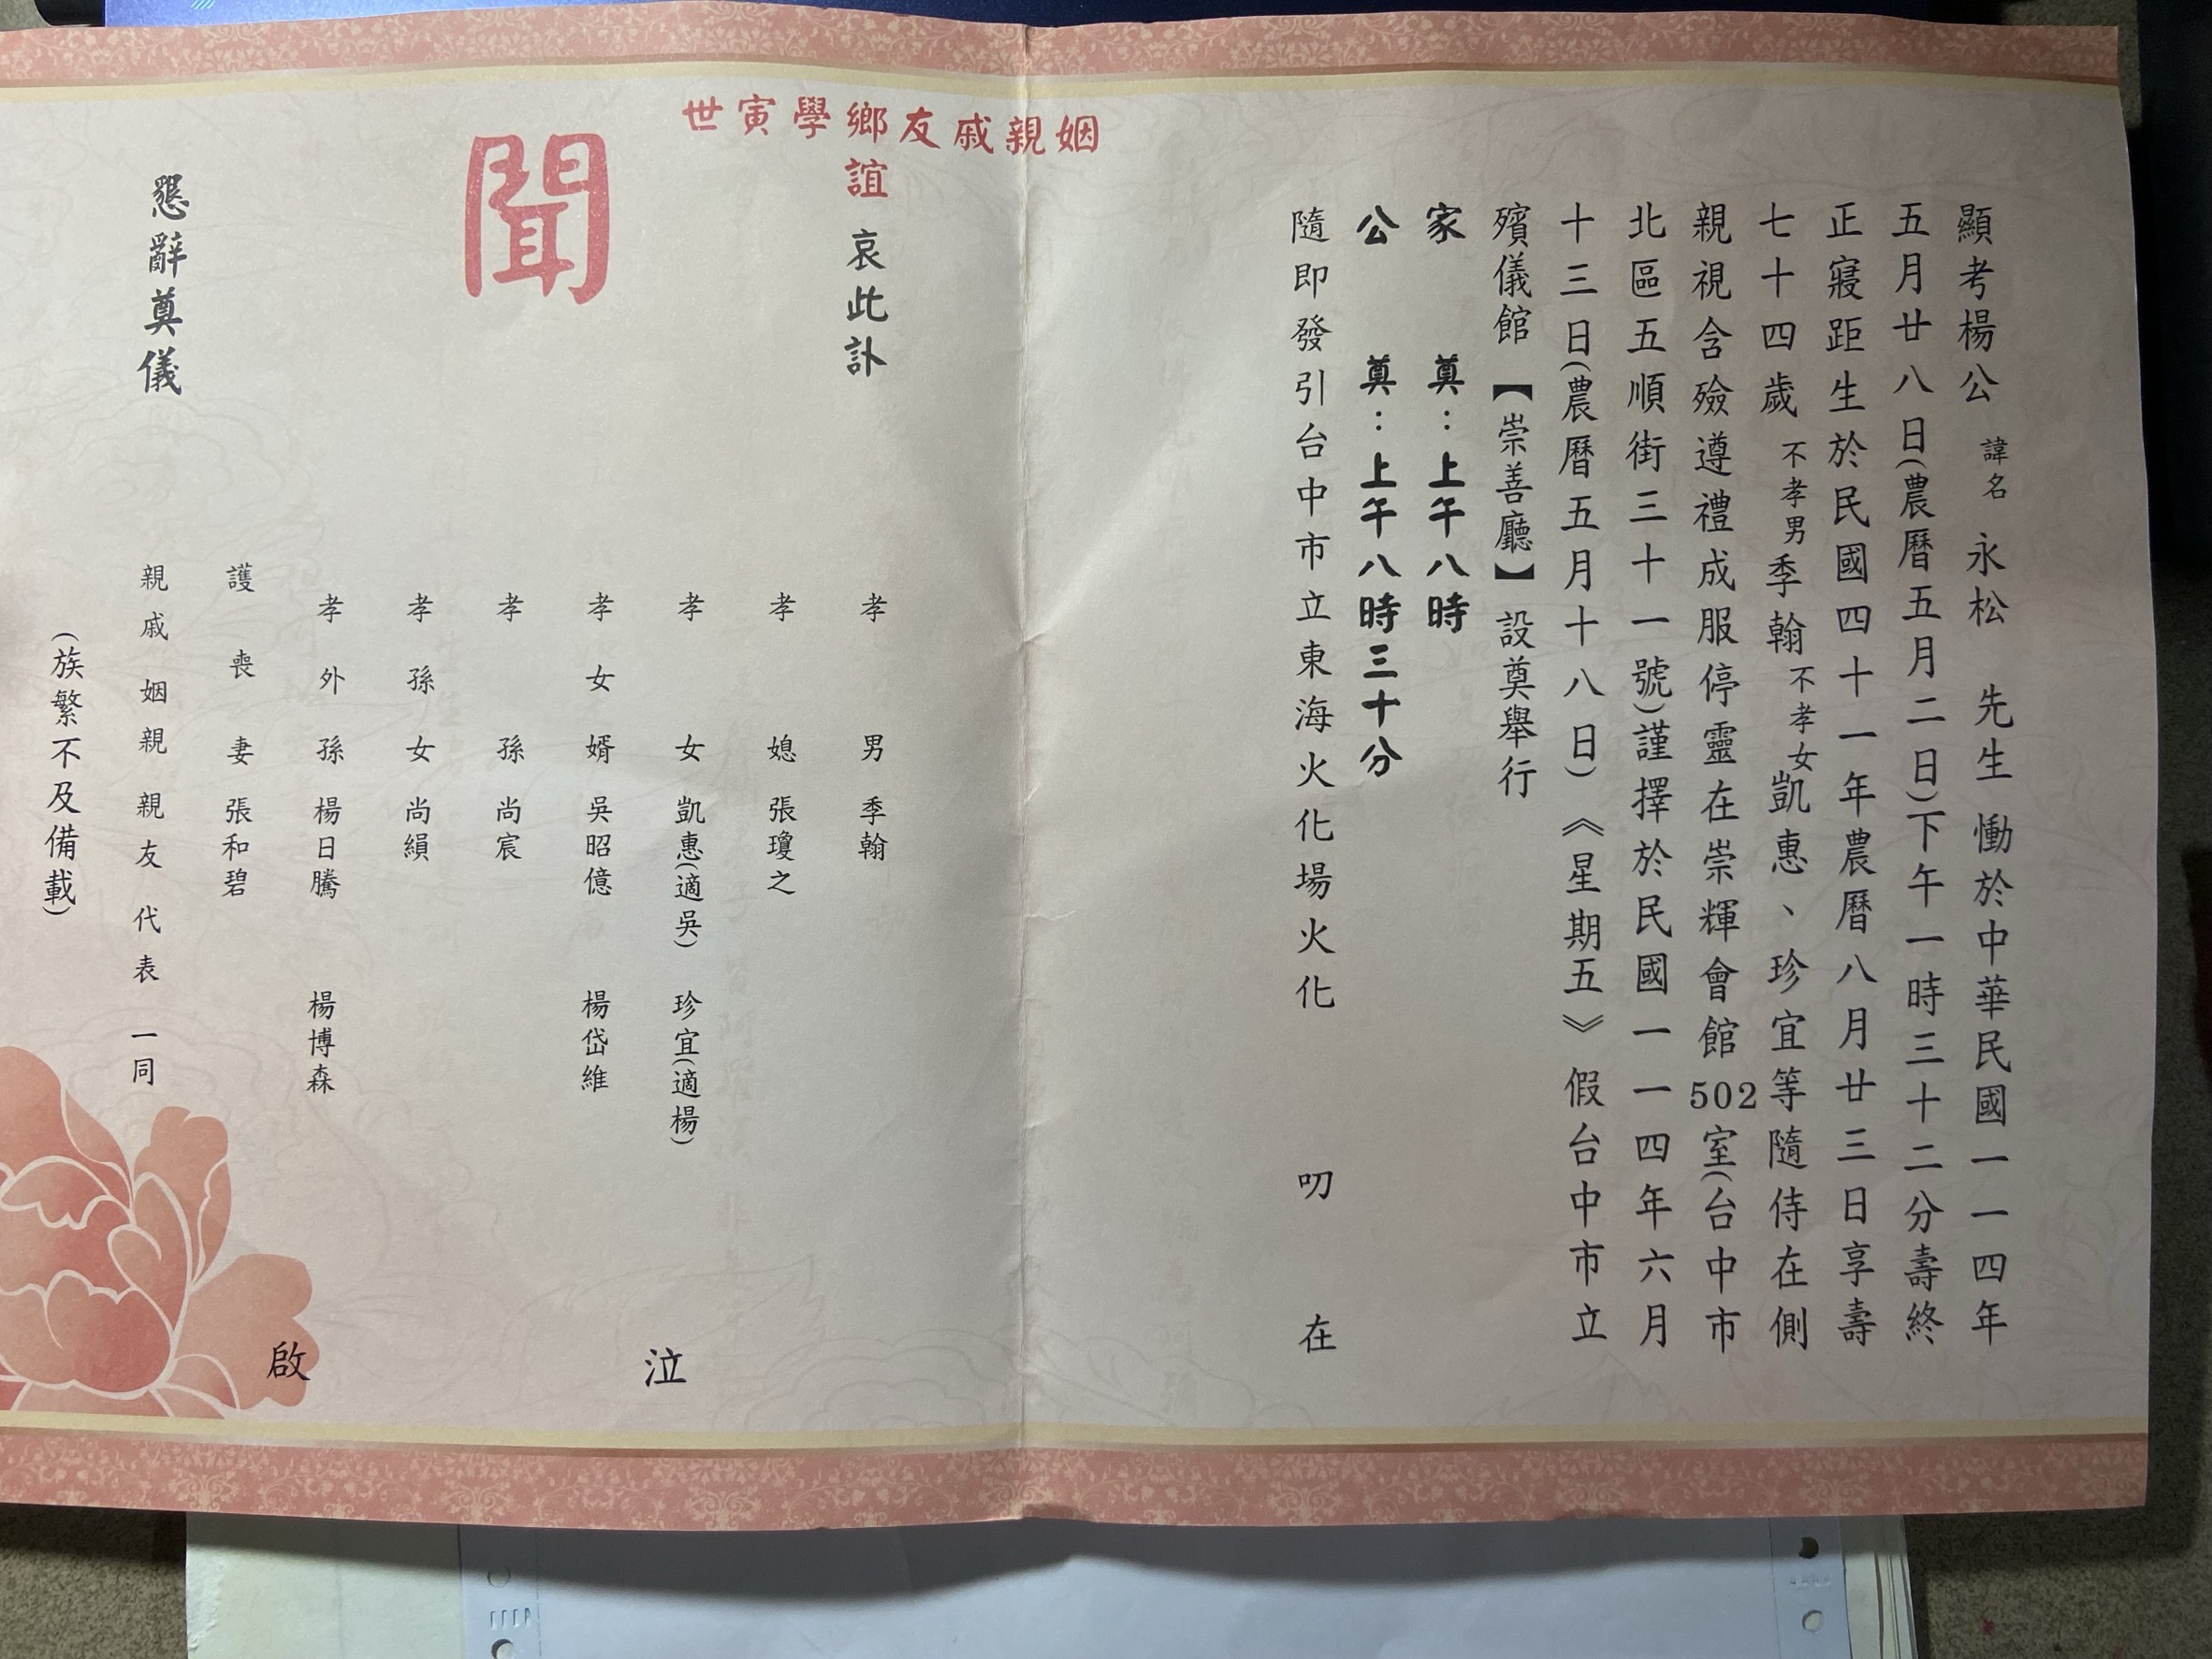 顯考楊公諱名永松 先生 慟於中華民國一一四年
五月廿八日(農曆五月二日)下午一時三十二分壽終
正寢距生於民國四十一年農曆八月廿三日享壽
七十四歲不孝男季翰不孝女凱惠、珍宜等隨侍在側
親視含殮遵禮成服停靈在崇輝會館502室(台中市
北區五順街三十一號)謹擇於民國一一四年六月
十三日(農曆五月十八日)《星期五》假台中市立
殯儀館【崇善廳】設奠舉行
家 奠:上午八時
公 奠:上午八時三十分
隨即發引台中市立東海火化場火化 叨 在
姻親戚友鄉學寅世
誼 哀此訃
聞
孝 男 季翰
孝 媳 張瓊之
孝 女 凱惠(適吳) 珍宜(適楊)
孝女婿 吳昭億 楊岱維
孝 孫 尚宸
孝孫女 尚縜
孝外孫 楊日騰 楊博森
護喪妻 張和碧
親戚 姻親 親友代表 一同
泣
啟
(族繁不及備載)
懇辭奠儀